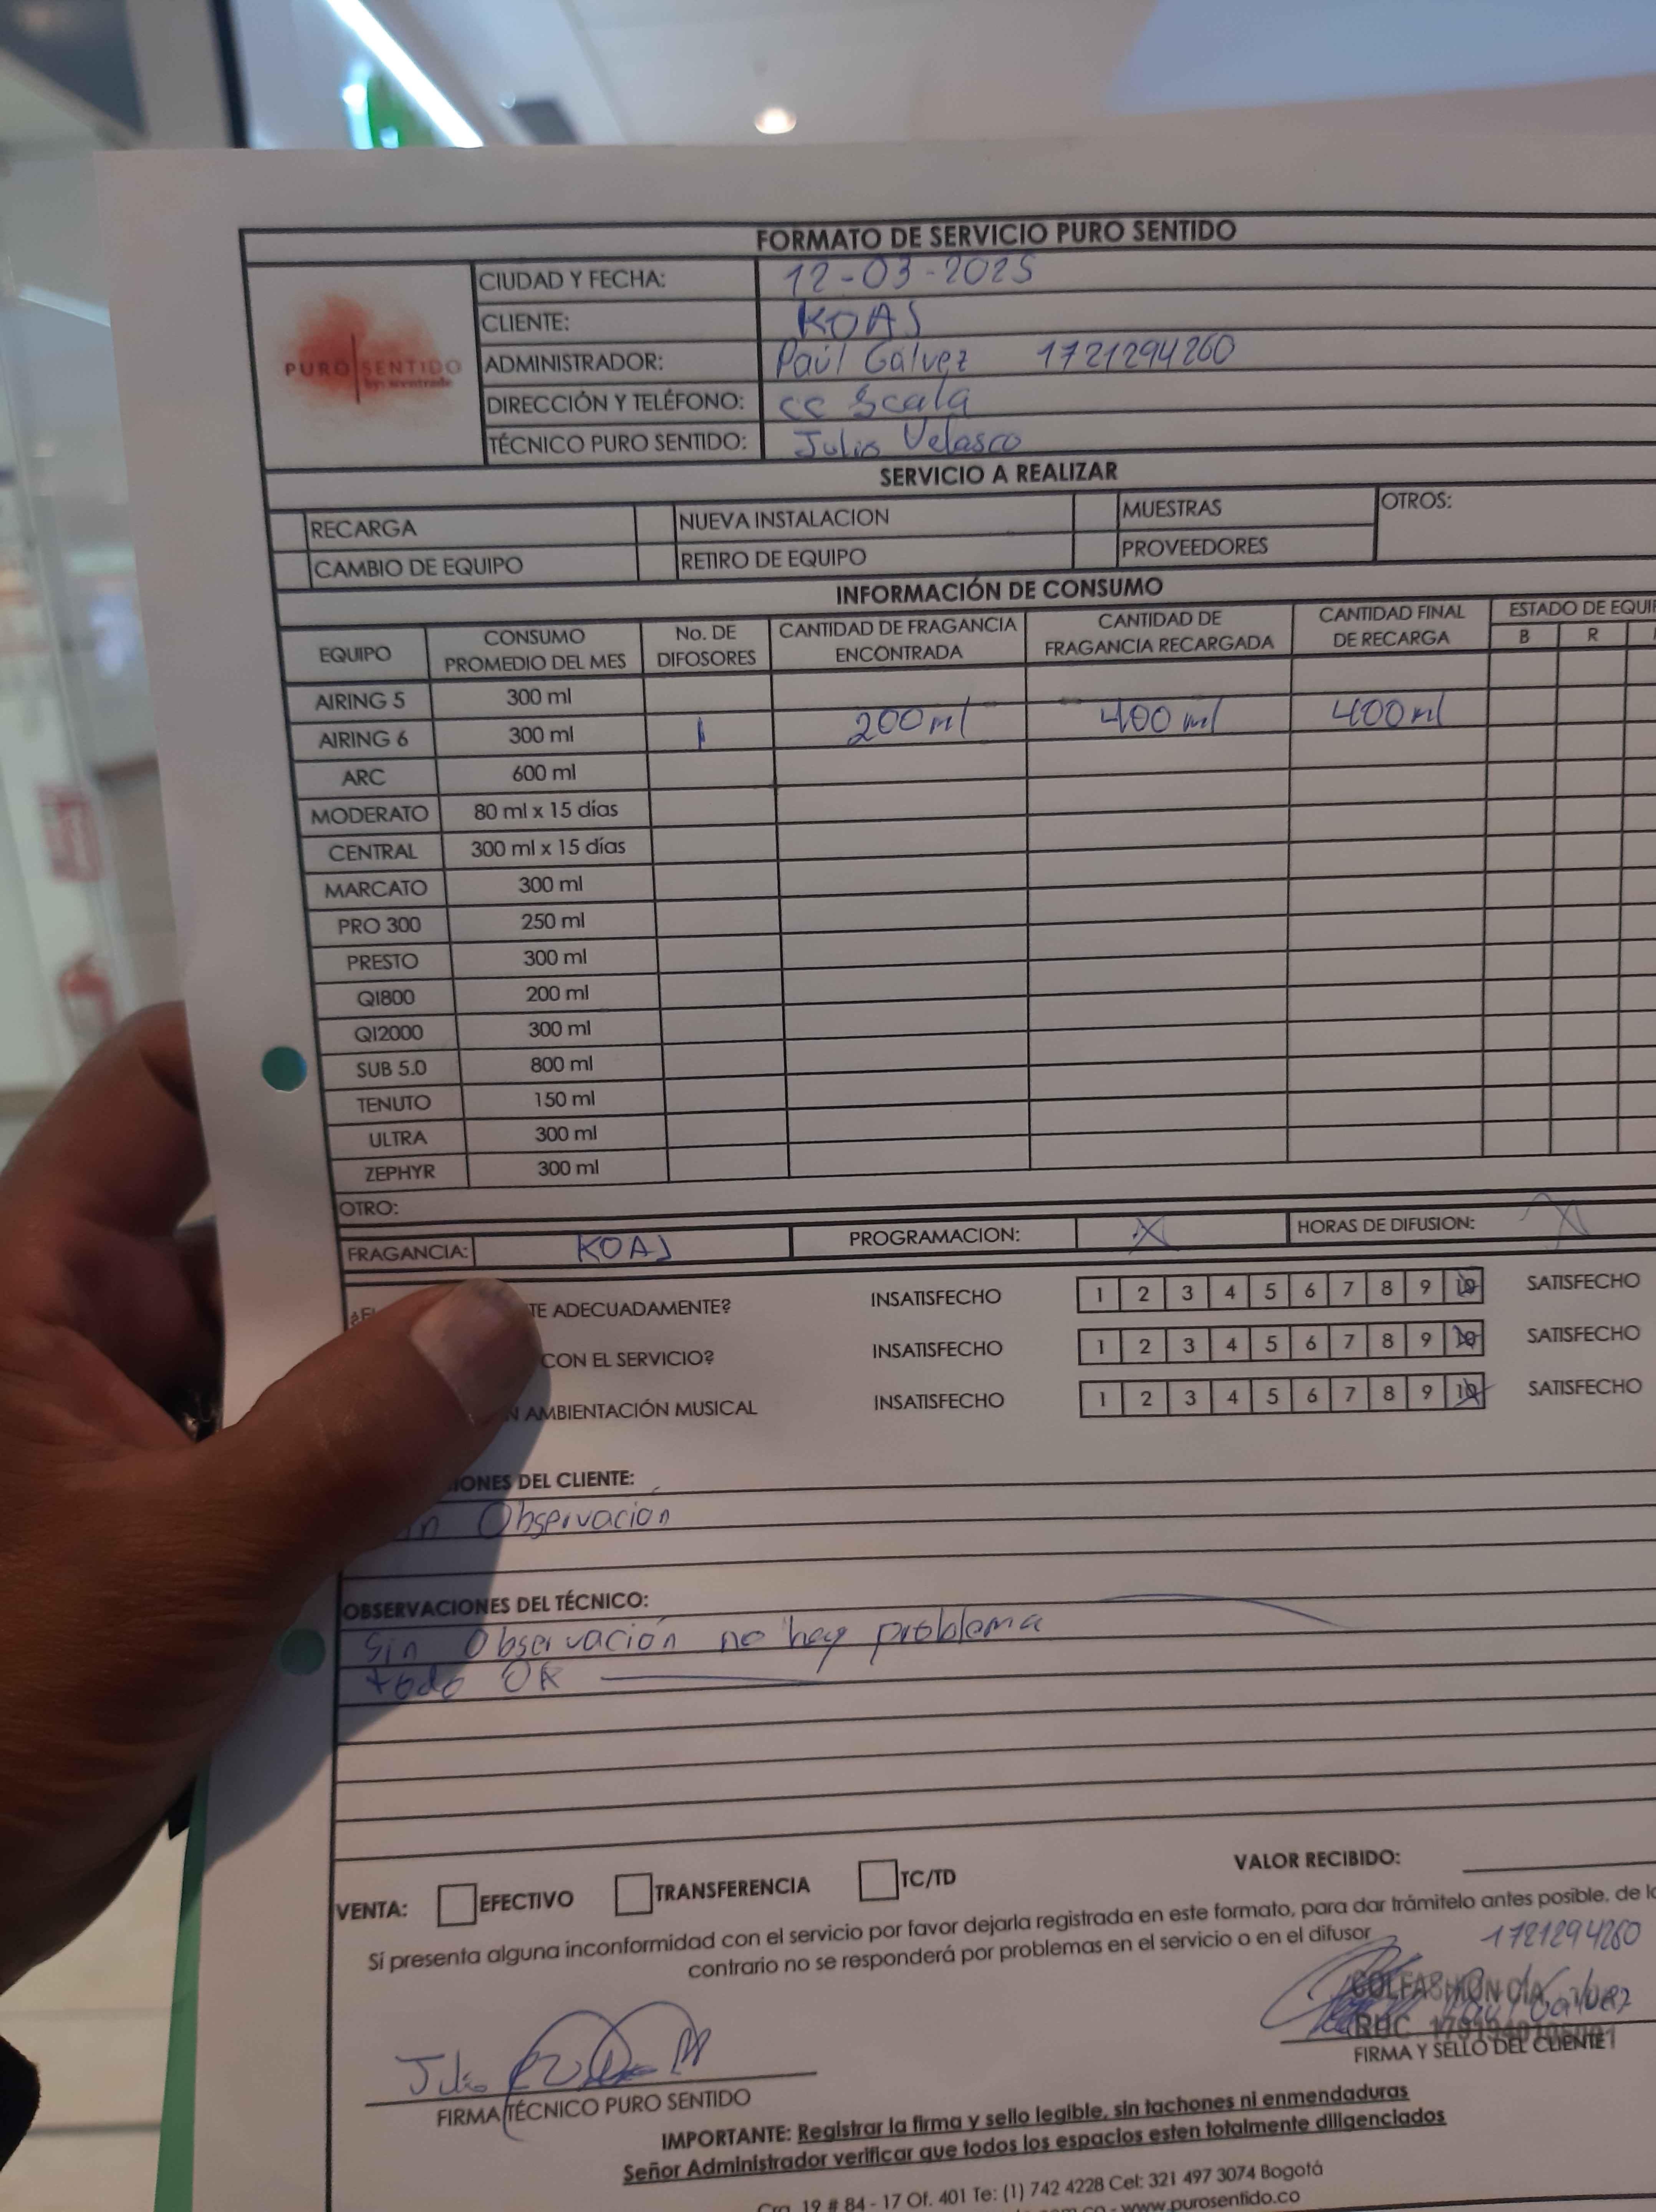 FORMATO DE SERVICIO PURO SENTIDO
PURO SENTIDO
CIUDAD Y FECHA: 12-03-2025
CLIENTE: KOAJ
ADMINISTRADOR: Paúl Galvez 1721294260
DIRECCIÓN Y TELÉFONO: cc Scala
TÉCNICO PURO SENTIDO: Julio Velasco
SERVICIO A REALIZAR
RECARGA NUEVA INSTALACION MUESTRAS OTROS:
CAMBIO DE EQUIPO RETIRO DE EQUIPO PROVEEDORES
INFORMACIÓN DE CONSUMO
EQUIPO CONSUMO PROMEDIO DEL MES No. DE DIFOSORES CANTIDAD DE FRAGANCIA ENCONTRADA CANTIDAD DE FRAGANCIA RECARGADA CANTIDAD FINAL DE RECARGA ESTADO DE EQUI
B R
AIRING 5 300 ml
AIRING 6 300 ml 1 200 ml 400 ml 400 ml
ARC 600 ml
MODERATO 80 ml x 15 días
CENTRAL 300 ml x 15 días
MARCATO 300 ml
PRO 300 250 ml
PRESTO 300 ml
QI800 200 ml
QI2000 300 ml
SUB 5.0 800 ml
TENUTO 150 ml
ULTRA 300 ml
ZEPHYR 300 ml
OTRO:
FRAGANCIA: KOAJ PROGRAMACION: X HORAS DE DIFUSION: X
TE ADECUADAMENTE? INSATISFECHO 1 2 3 4 5 6 7 8 9 10 SATISFECHO
CON EL SERVICIO? INSATISFECHO 1 2 3 4 5 6 7 8 9 10 SATISFECHO
N AMBIENTACIÓN MUSICAL INSATISFECHO 1 2 3 4 5 6 7 8 9 10 SATISFECHO
IONES DEL CLIENTE:
Observacion
OBSERVACIONES DEL TÉCNICO:
Sin Observación no hay problema
todo OK
VENTA: EFECTIVO TRANSFERENCIA TC/TD VALOR RECIBIDO:
Sí presenta alguna inconformidad con el servicio por favor dejarla registrada en este formato, para dar trámitelo antes posible, de lo
contrario no se responderá por problemas en el servicio o en el difusor
1721294260
COLFASHION CIA.
Paul Galvez
RUC
Julio
FIRMA TÉCNICO PURO SENTIDO
FIRMA Y SELLO DEL CLIENTE
IMPORTANTE: Registrar la firma y sello legible, sin tachones ni enmendaduras
Señor Administrador verificar que todos los espacios esten totalmente diligenciados
Cra. 19 # 84 - 17 Of. 401 Te: (1) 742 4228 Cel: 321 497 3074 Bogotá
www.purosentido.co